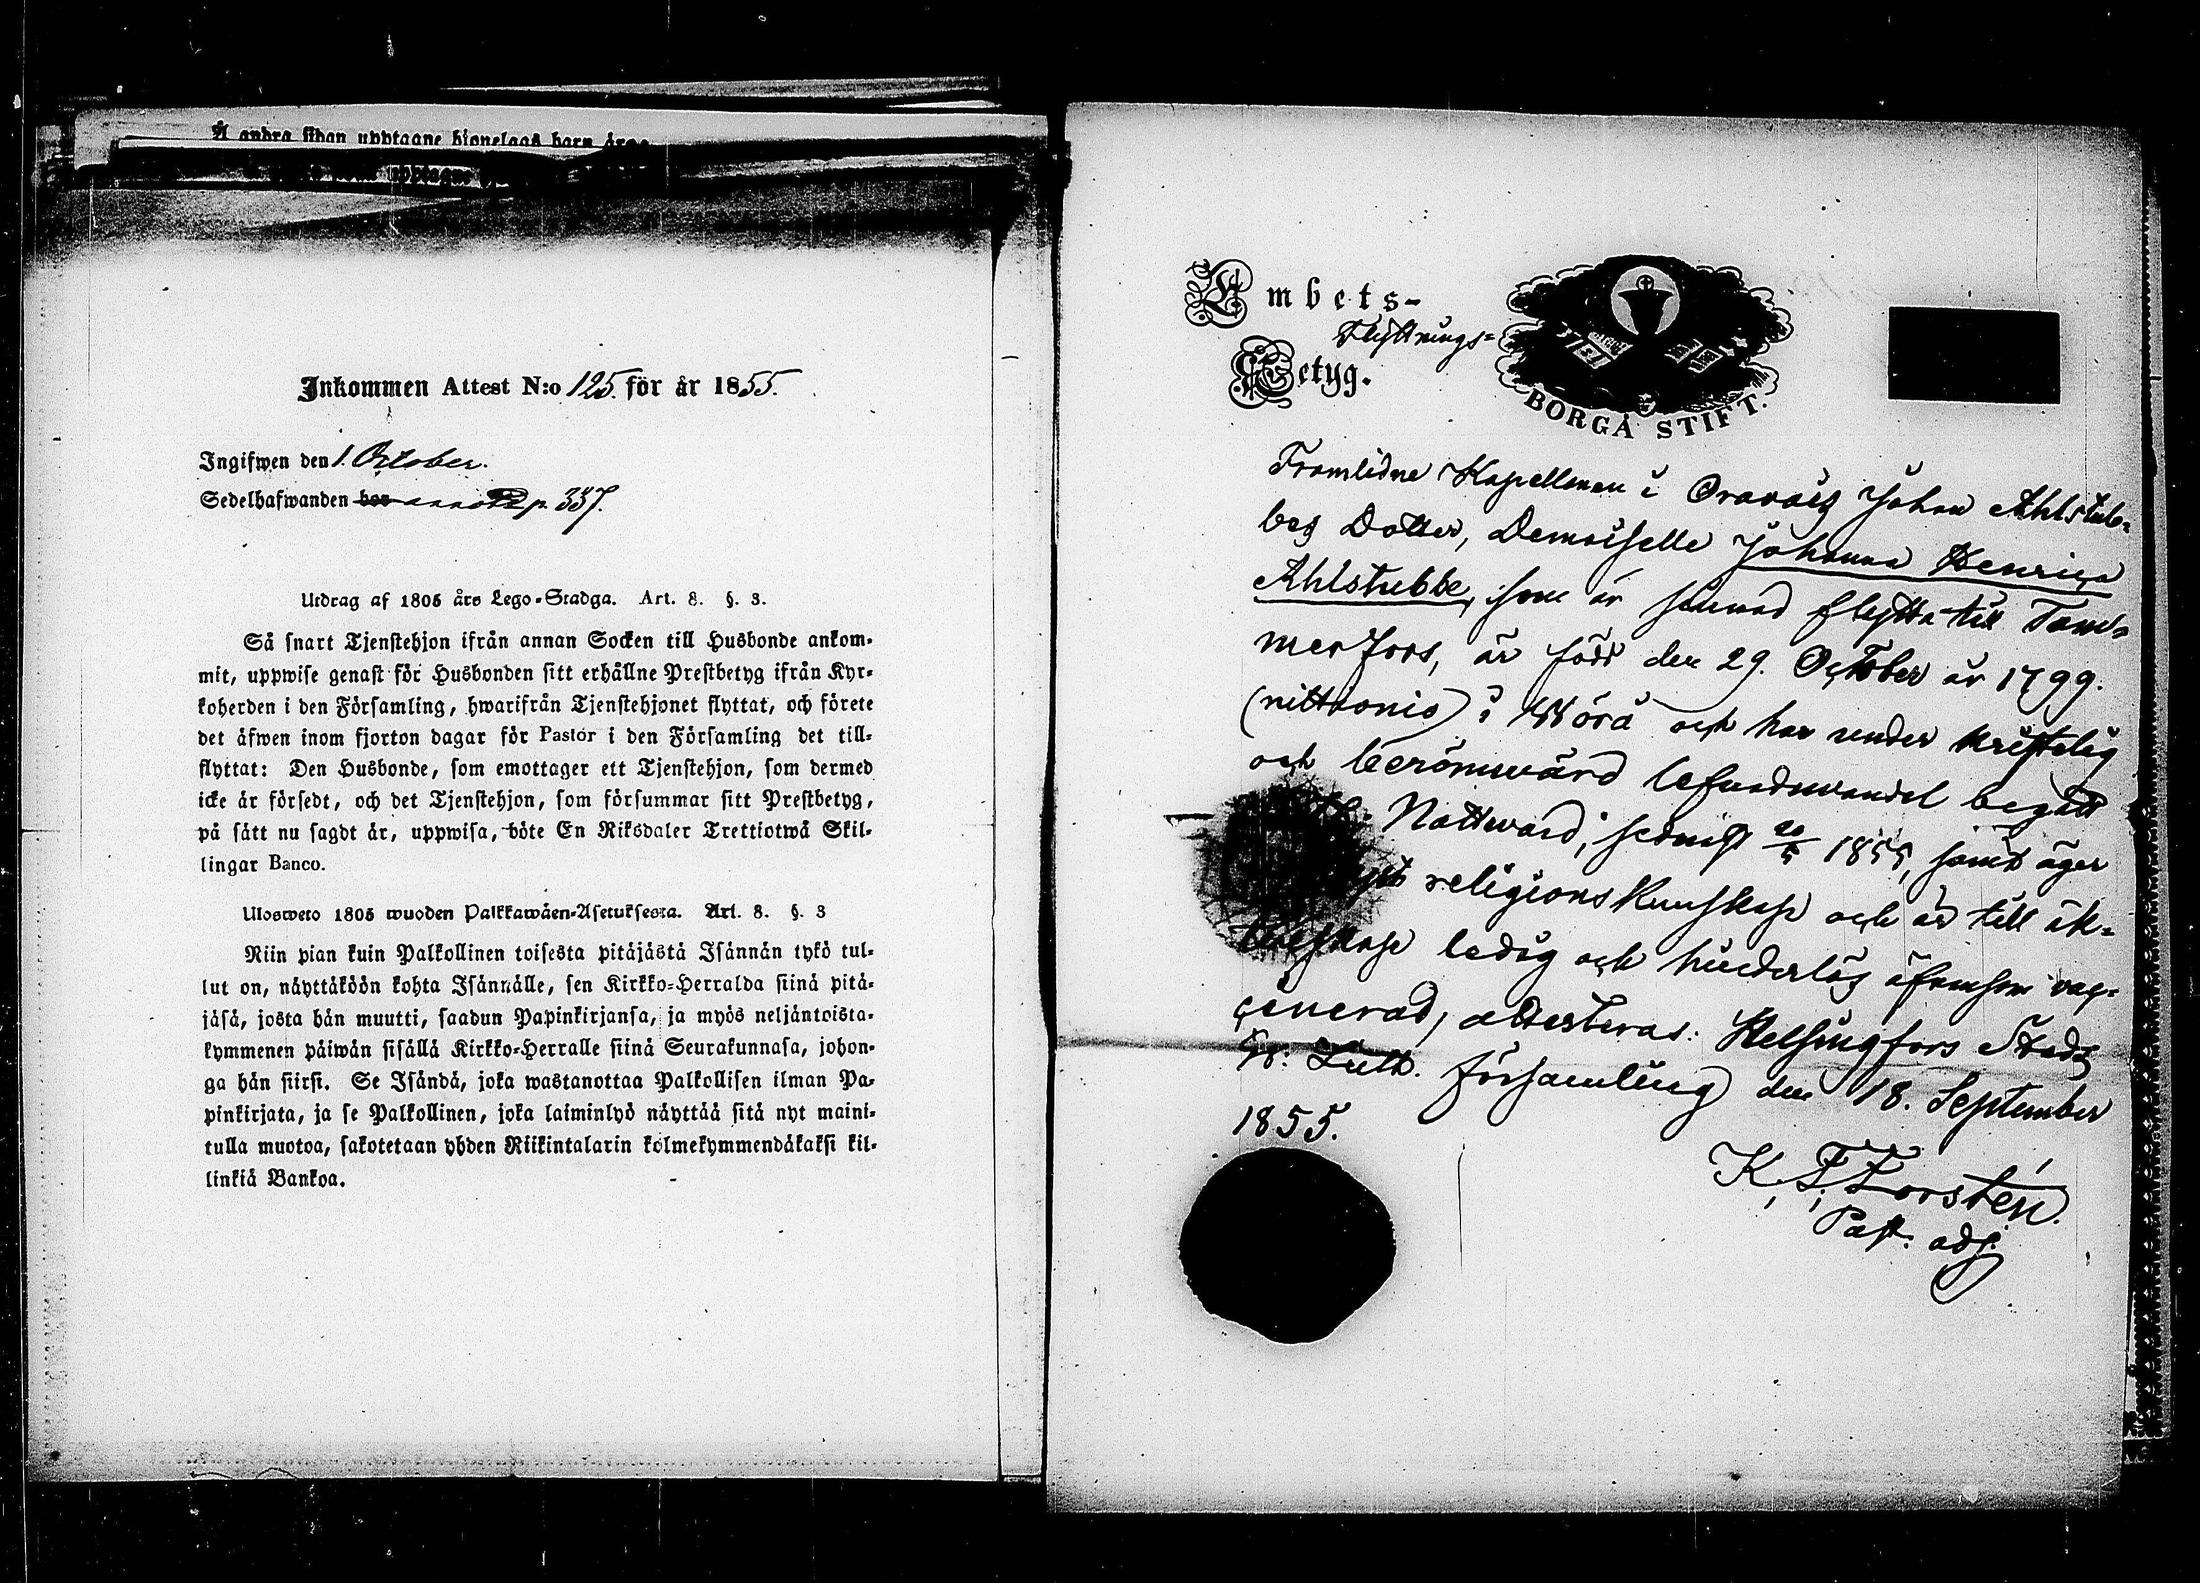 Å andra sidan upptagne hjonelags barn äro
Inkommen Attest N:o 125. för år 1855.
Ingifwen den 1. October.
Sedelhafwanden har annott p. 337.
Utdrag af 1805 års Lego-Stadga. Art. 8. §. 3.
Så snart Tjenstehjon ifrån annan Socken till Husbonde ankom-
mit, uppwise genast för Husbonden sitt erhållne Prestbetyg ifrån Kyr-
koherden i den Församling, hwarifrån Tjenstehjonet flyttat, och förete
det äfwen inom fjorton dagar för Pastor i den Församling det till-
flyttat: Den Husbonde, som emottager ett Tjenstehjon, som dermed
icke är försedt, och det Tjenstehjon, som försummar sitt Prestbetyg,
på sätt nu sagdt är, uppwisa, böte En Riksdaler Trettiotwå Skil-
lingar Banco.
Ulosweto 1805 wuoden Palkkawäen-Asetuksesta. Art. 8. §. 3
Niin pian kuin Palkollinen toisesta pitäjästä Isännän tykö tul-
lut on, näyttäköön kohta Isännälle, sen Kirkko-Herralda siinä pitä-
jäsä, josta hän muutti, saadun Papinkirjansa, ja myös neljäntoista-
kymmenen päiwän sisällä Kirkko-Herralle siinä Seurakunnasa, johon-
ga hän siirsi. Se Isändä, joka wastanottaa Palkollisen ilman Pa-
pinkirjata, ja se Palkollinen, joka laiminlyö näyttää sitä nyt maini-
tulla muotoa, sakotetaan yhden Riikintalarin kolmekymmendäkaksi kil-
linkiä Bankoa.
Embets-
Flyttnings-
Betyg.
BORGÅ STIFT.
Framlidne Kapellanen i Oravais Johan Ahlstub-
bes Dotter, Demoiselle Johanna Henrica
Ahlstubbe, som är sinnad flytta till Tam-
merfors, är född den 29. October år 1799.
(nittionio) i Wörå och har under kristelig
och berömwärd lefnadswandel begått
H. Nattward, sednast 20/5 1855, samt äger
religionskunskap och är till äk-
tenskap ledig och hinderlös äfvensom vac-
cinerad, attesteras. Helsingfors Stads
Ev: Luth. församling den 18. September
1855.
K. F. Forstén.
Past. adj.